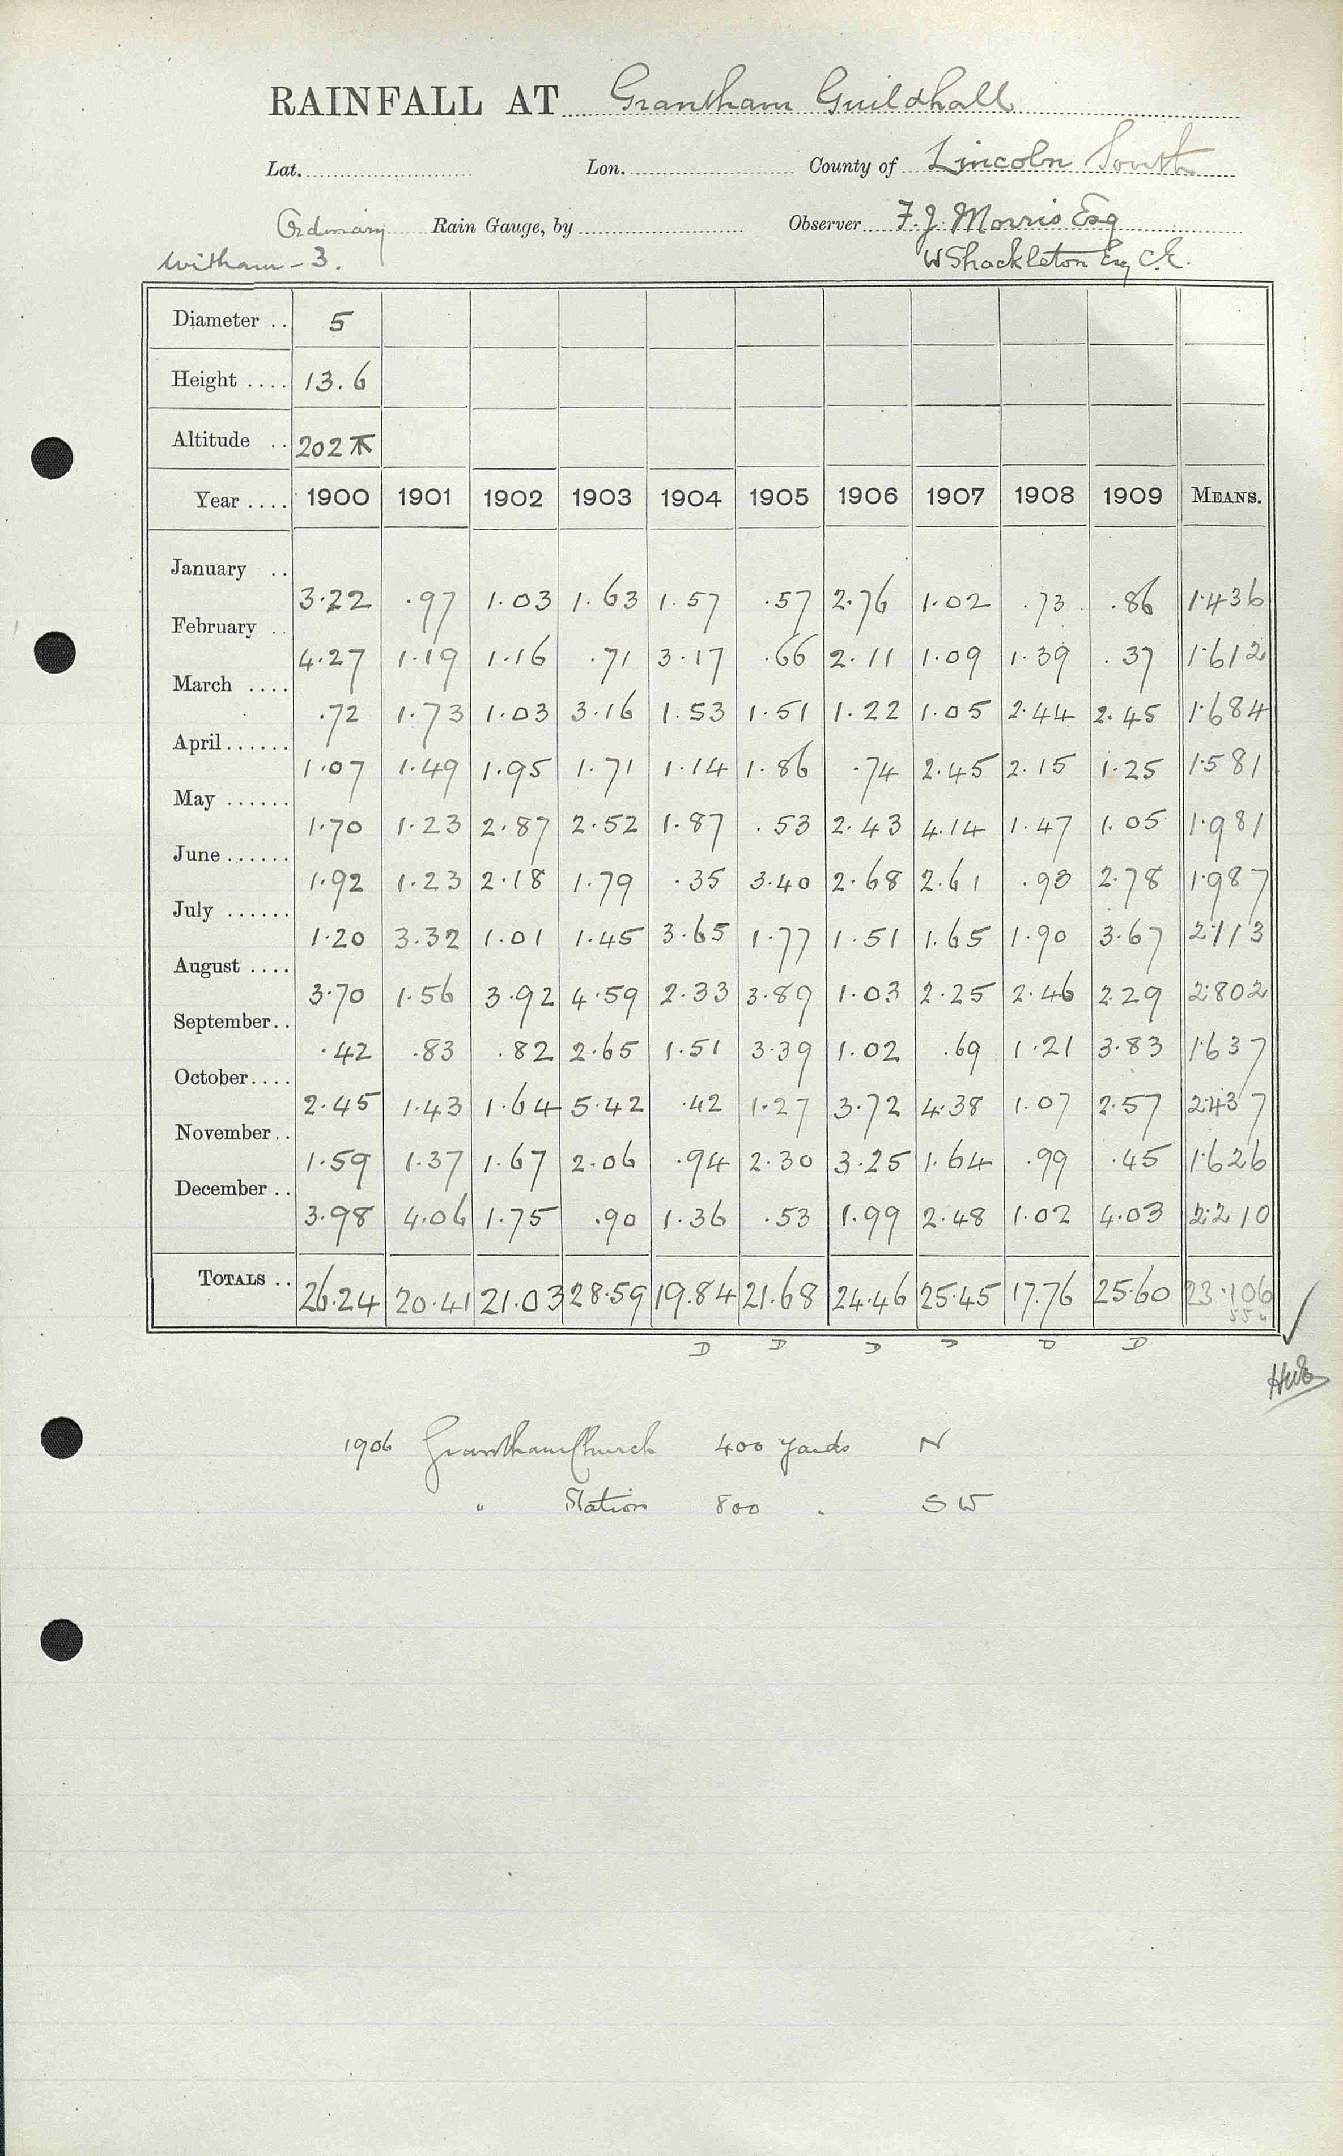 RAINFALL AT Grantham Guildhall
Lat. Lon. County of Lincoln South
Ordinary Rain Gauge, by Observer F. J. Morris Esq
Witham - 3. W Shackleton Esq C.E.
Diameter .. 5
Height .... 13.6
Altitude .. 202
Year .... 1900 1901 1902 1903 1904 1905 1906 1907 1908 1909 MEANS.
January .. 3.22 .97 1.03 1.63 1.57 .57 2.76 1.02 .73 .86 1.436
February .. 4.27 1.19 1.16 .71 3.17 .66 2.11 1.09 1.39 .37 1.612
March .... .72 1.73 1.03 3.16 1.53 1.51 1.22 1.05 2.44 2.45 1.684
April...... 1.07 1.49 1.95 1.71 1.14 1.86 .74 2.45 2.15 1.25 1.581
May ...... 1.70 1.23 2.87 2.52 1.87 .53 2.43 4.14 1.47 1.05 1.981
June...... 1.92 1.23 2.18 1.79 .35 3.40 2.68 2.61 .93 2.78 1.987
July ...... 1.20 3.32 1.01 1.45 3.65 1.77 1.51 1.65 1.90 3.67 2.113
August .... 3.70 1.56 3.92 4.59 2.33 3.89 1.03 2.25 2.46 2.29 2.802
September.. .42 .83 .82 2.65 1.51 3.39 1.02 .69 1.21 3.83 1.637
October.... 2.45 1.43 1.64 5.42 .42 1.27 3.72 4.38 1.07 2.57 2.437
November.. 1.59 1.37 1.67 2.06 .94 2.30 3.25 1.64 .99 .45 1.626
December .. 3.98 4.06 1.75 .90 1.36 .53 1.99 2.48 1.02 4.03 2.210
TOTALS .. 26.24 20.41 21.03 28.59 19.84 21.68 24.46 25.45 17.76 25.60 23.106
D D D D D D
1906 Grantham Church 400 yards N
" Station 800 " SW